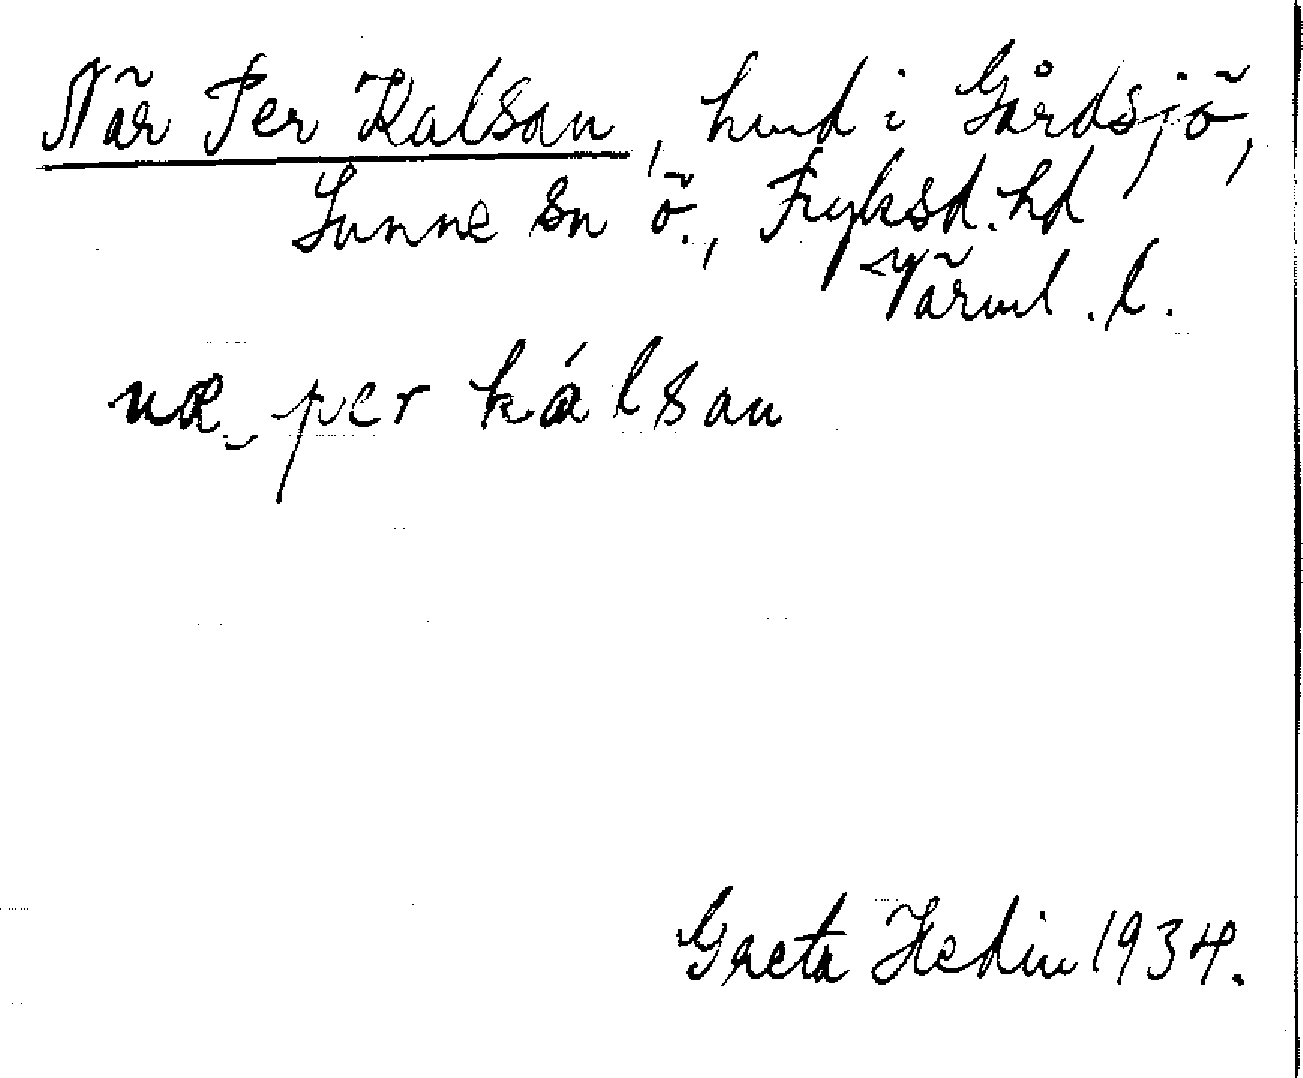 När Per Kalsan, hmd i Gårdsjö,
Sunne sn ö., Fryksd. hd
Värml. l.
næ‿ per kálsan
Greta Hedin 1934.